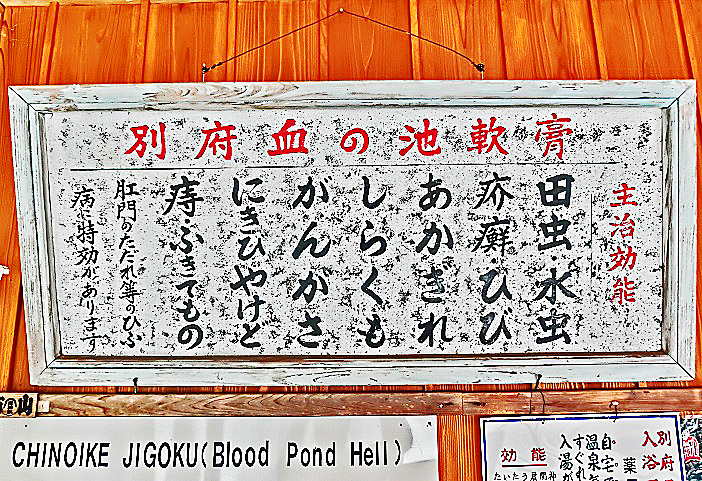 別府血の池軟膏
主治効能
田虫・水虫
疥癬ひび
あかぎれ
しらくも
がんかさ
にきびやけど
痔ふきでもの
肛門のただれ等のひふ
病に特効があります
CHINOIKE JIGOKU(Blood Pond Hell)
別府
入浴
薬
自宅で
温泉気
すぐれ
入湯が
効能